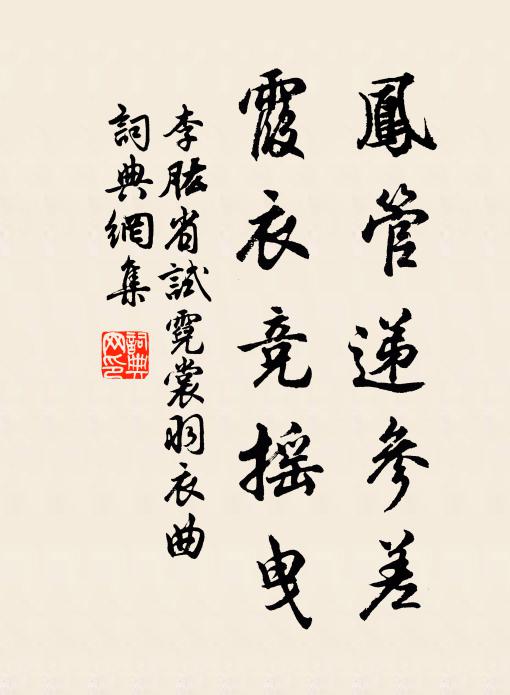 鳳管遞參差
霞衣竞摇曳
李肱省試霓裳羽衣曲
詞典網集
詞典网印